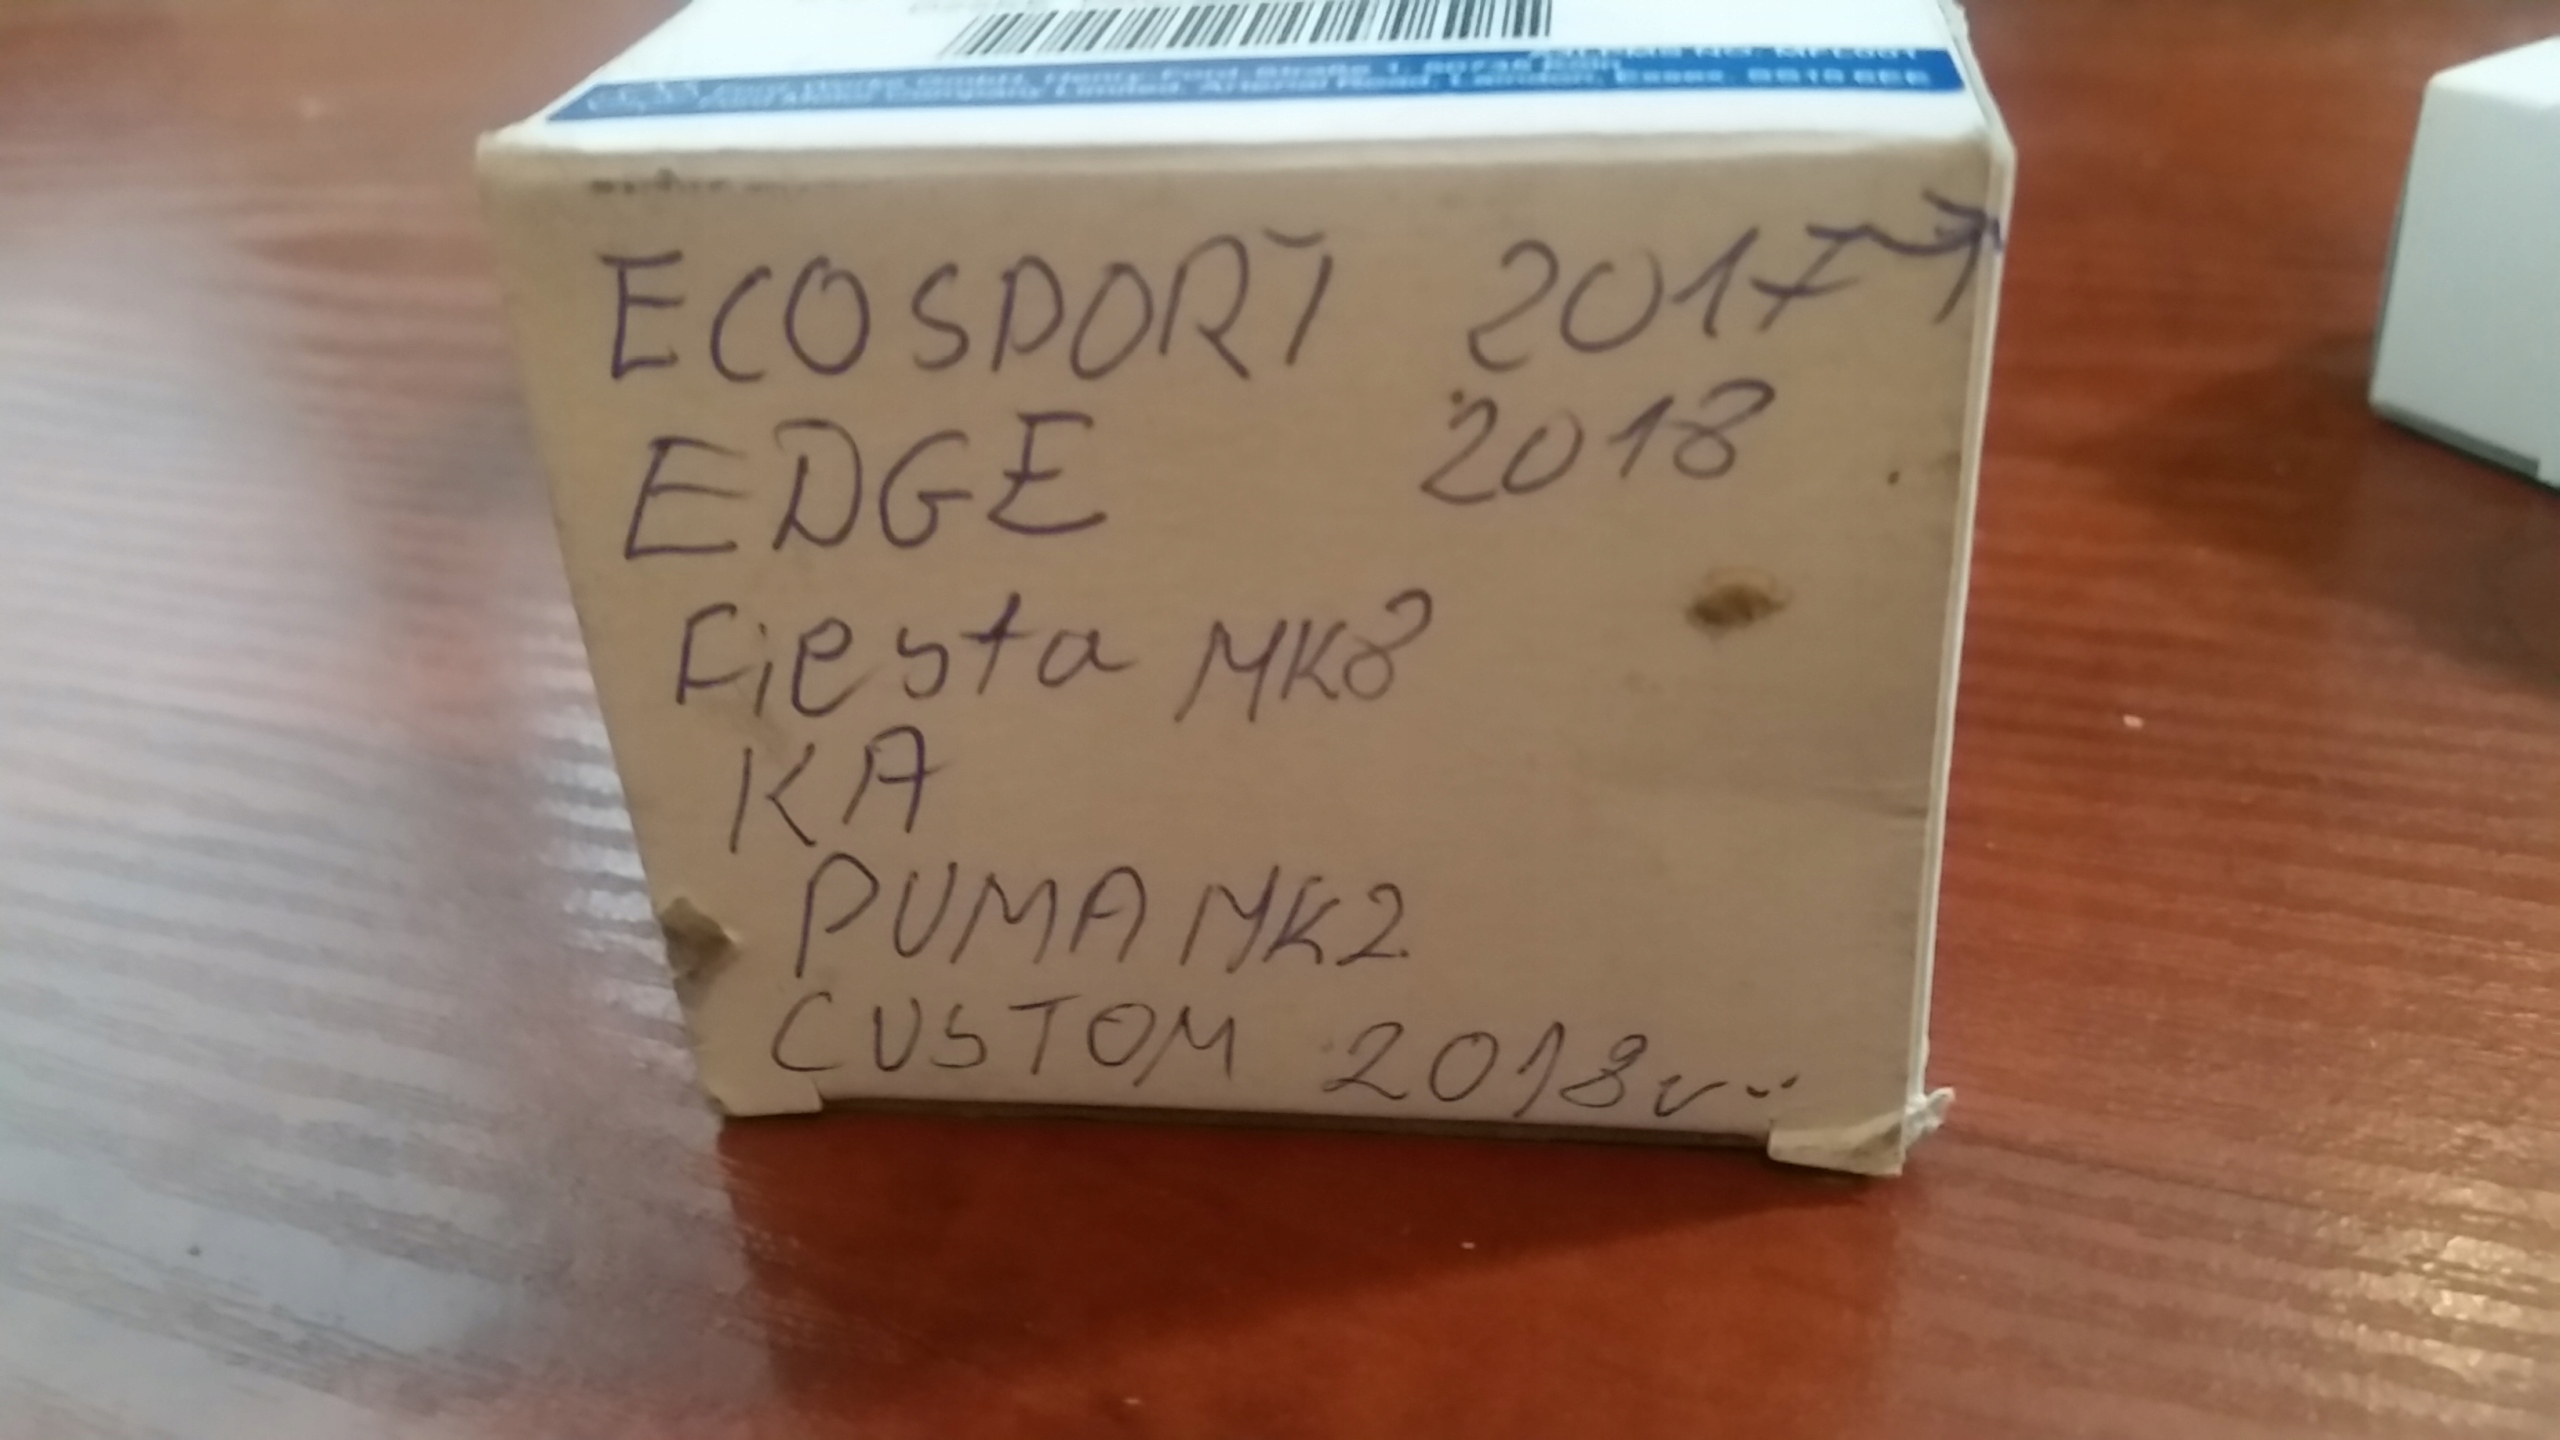 Ford-Werke GmbH, Henry-Ford-Straße 1, 50735 Köln
Ford Motor Company Limited, Arterial Road, Laindon, Essex, SS15 6EE
ECOSPORT 2017→
EDGE 2018
Fiesta MK8
KA
PUMA MK2
CUSTOM 2018